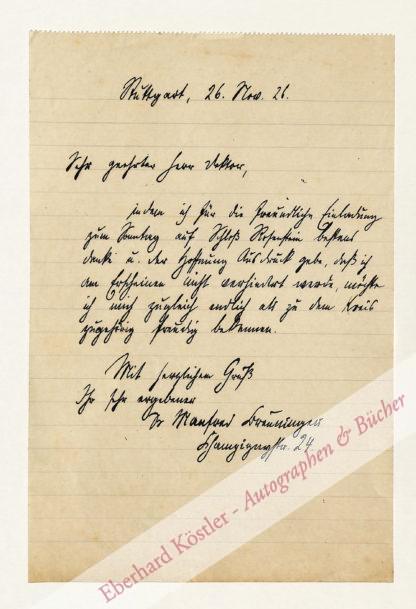 Stuttgart, 26. Nov. 26.
Sehr geehrter Herr Doktor,
indem ich für die freundliche Einladung
zum Sonntag auf Schloß Rosenstein bestens
danke u. der Hoffnung Ausdruck gebe, daß ich
am Erscheinen nicht verhindert werde, möchte
ich mich zugleich endlich als zu dem Kreis
zugehörig freudig bekennen.
Mit herzlichem Gruß
Ihr sehr ergebener
Dr Manfred Breuninger
Champignystr. 24
Eberhard Köstler - Autographen & Bücher